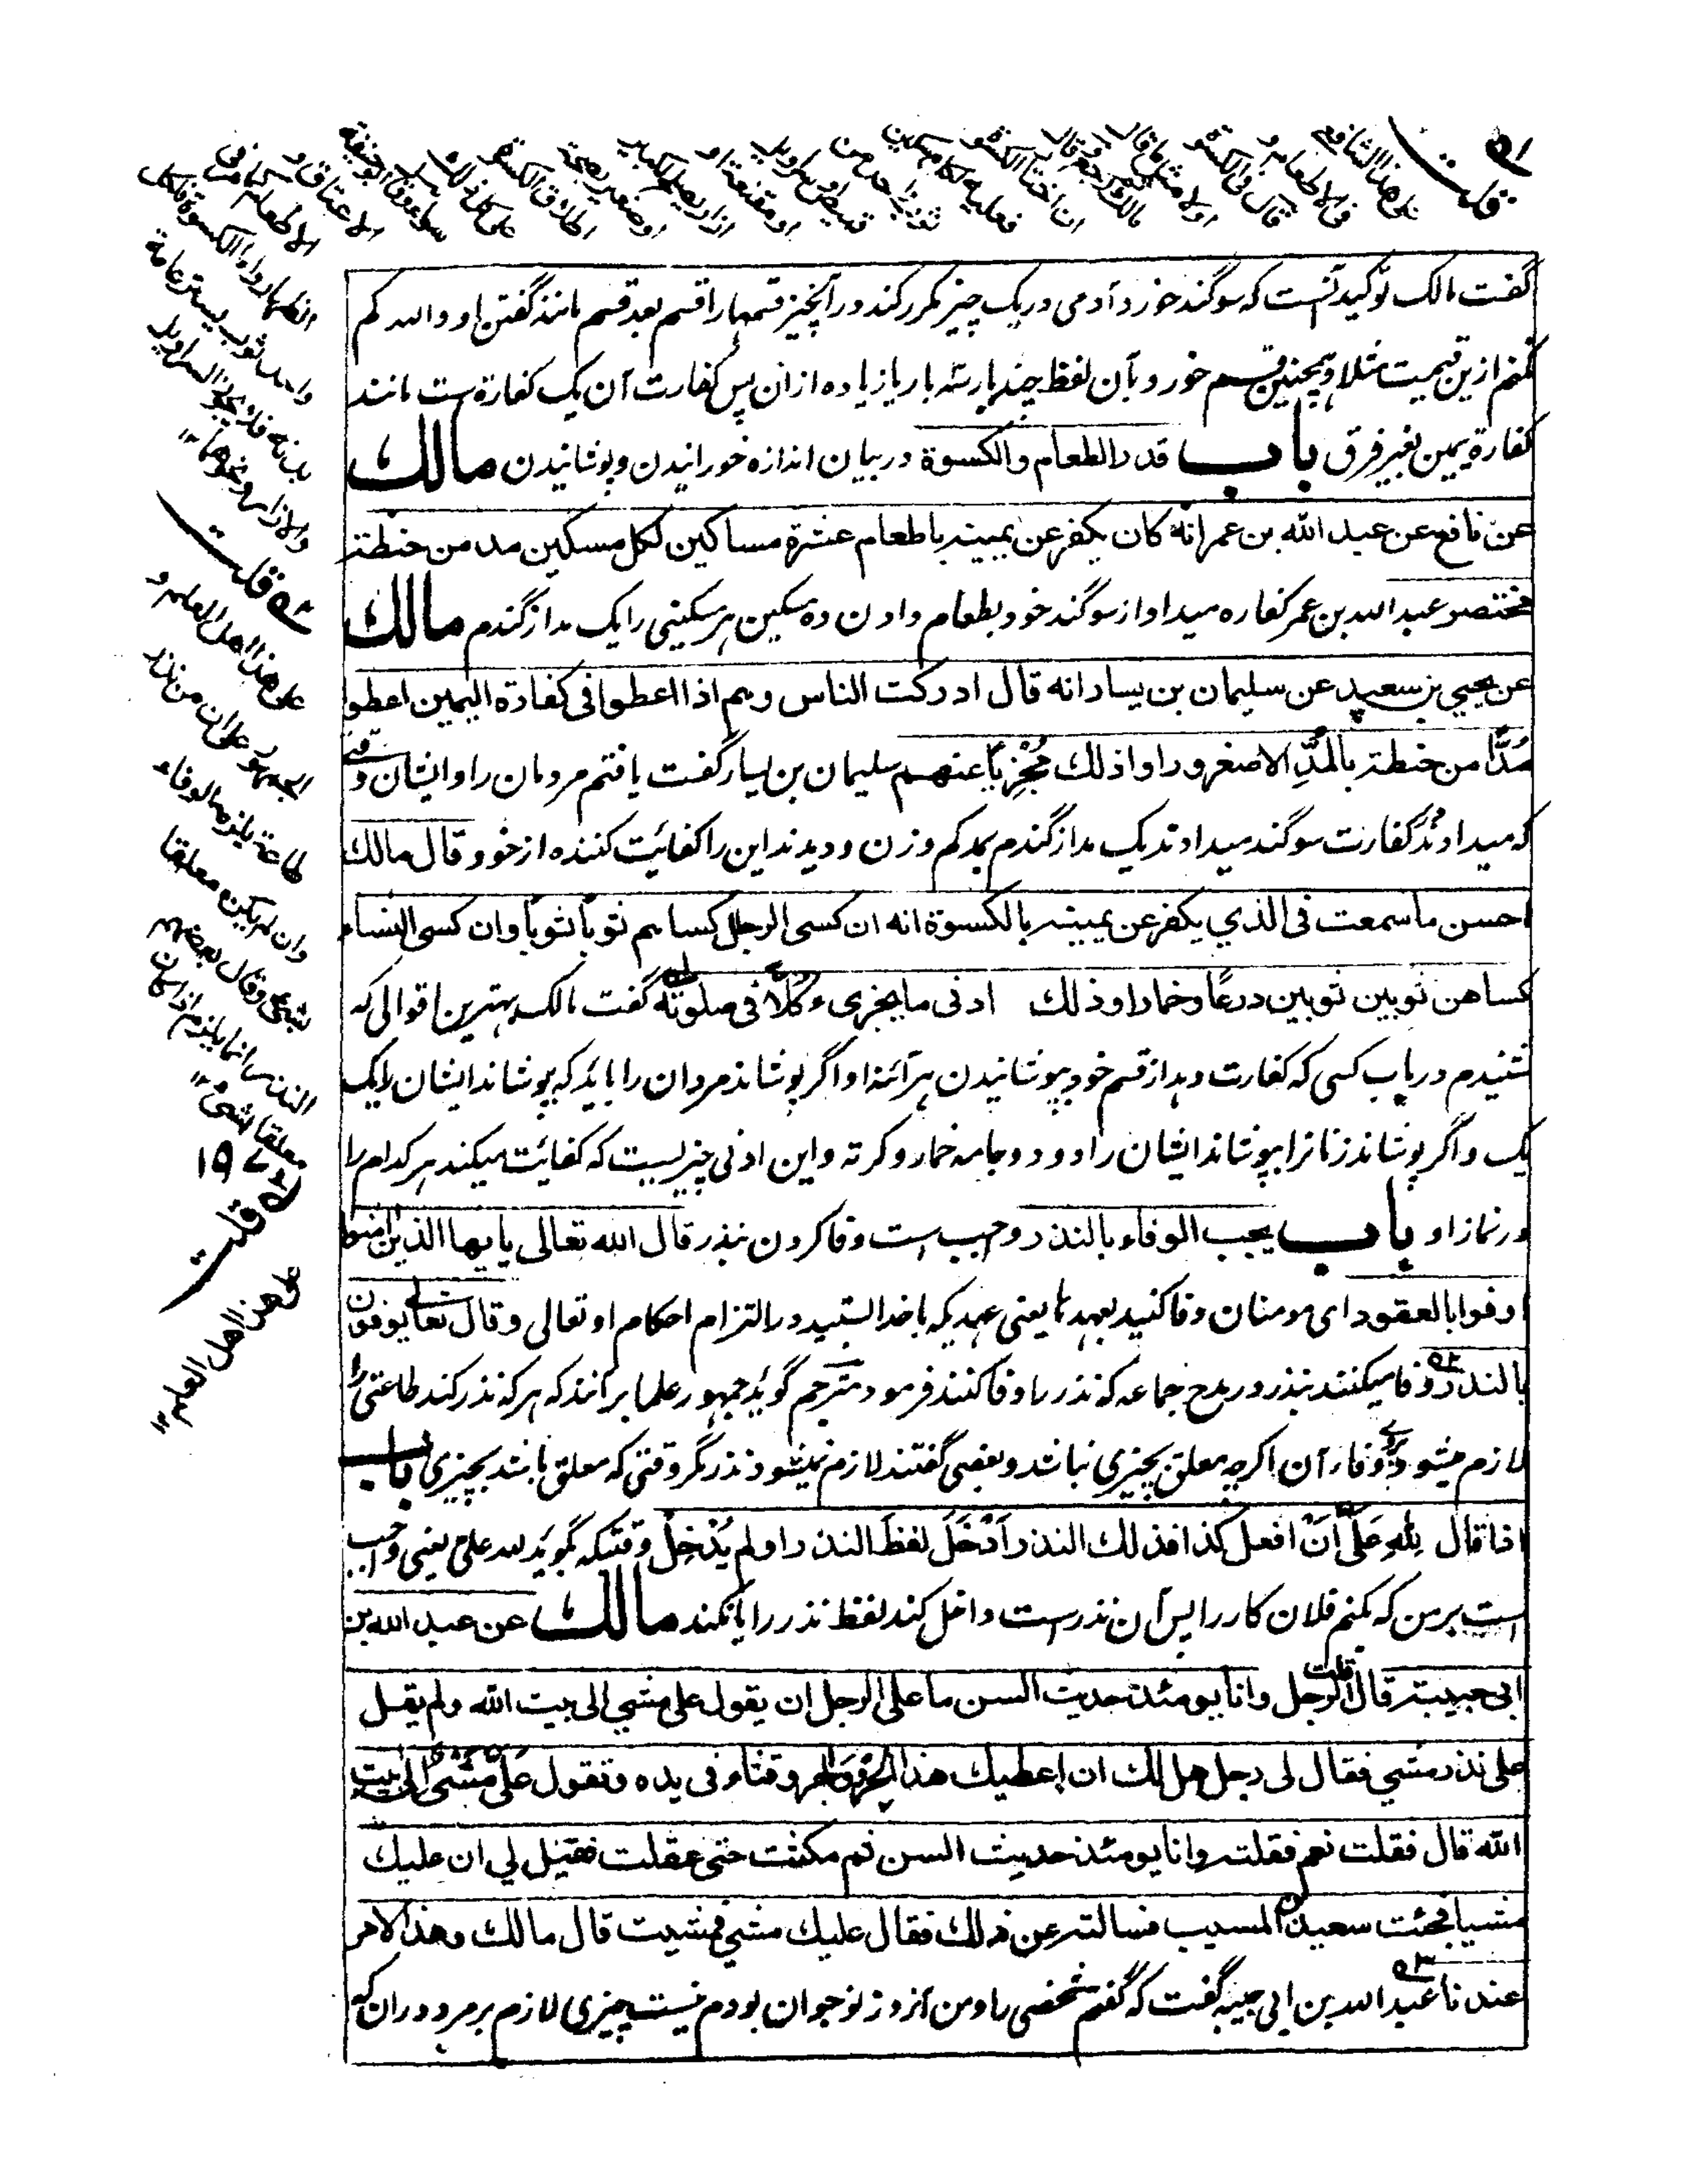 گفت مالک توکید آنست که سوگند خورد آدمی در یک چیز مکرر کند در آنچیز قسمها را قسم بعد قسم مانند گفتن او والله کم
نکنم ازین قیمت مثلا و همچنین قسم خورد بآن لفظ چند بار سه بار یا زیاده ازان پس کفارت آن یک کفارة ست مانند
کفارة یمین بغیر فرق باب قدر الطعام والكسوة در بیان اندازه خورانیدن و پوشانیدن مالك
عن نافع عن عبد الله بن عمر انه كان يكفر عن يمينه باطعام عشرة مساكين لكل مسكين مد من حنطة
مختصر عبد الله بن عمر کفاره میداد از سوگند خود بطعام دادن ده مسکین هر مسکینی را یک مد از گندم مالك
عن يحيي بن سعيد عن سليمان بن يسار انه قال ادركت الناس وهم اذا اعطوا في كفارة اليمين اعطوا
مُدًّا من حنطة بالمُدِّ الاصغر وراوا ذلك مُجْزِيًا عنهم سلیمان بن یسار گفت یافتم مردمان را و ایشان وقتی
که میدادند در کفارت سوگند میدادند یک مد از گندم بمد کم وزن و دیدند این را کفائیت کننده از خود وقال مالك
احسن ما سمعت فى الذي يكفر عن يمينه بالكسوة انه ان كسى الرجل كساهم ثوبًا ثوبًا وان كسى النساء
كساهن ثوبين ثوبين درعًا وخمارا وذلك ادنى ما يجزىء كلًّا فى صلوته گفت مالک بهترین اقوالی که
شنیدم در باب کسی که کفارت دهد از قسم خود بپوشانیدن هرآئنه او اگر پوشاند مردان را باید که بپوشاند ایشان را یک
یک و اگر پوشاند زنانرا بپوشاند ایشان را دو دو جامه خمار و کرته و این ادنی چیزیست که کفائیت میکند هر کدام را
در نماز او باب يجب الوفاء بالنذر واجب است وفا کردن بنذر قال الله تعالى يايها الذين امنوا
اوفوا بالعقود ای مومنان وفا کنید بعهدها یعنی عهدیکه با خدا بستید در التزام احکام او تعالی وقال تعالى يوفون
بالنذر وفا میکنند بنذر در مدح جماعه که نذر را وفا کنند فرمود مترجم گوید جمهور علما برآنند که هر که نذر کند طاعتی را
لازم میشود بروی وفاء آن اگرچه معلق بچیزی نباشد و بعضی گفتند لازم نمیشود نذر مگر وقتی که معلق باشد بچیزی باب
اذا قال لِلّٰهِ عَلَيَّ اَنْ افعل كذا فذلك النذر اَدْخَلَ لفظَ النذر اولم يُدْخِلْ وقتیکه گوید لله علي یعنی واجب
است بر من که بکنم فلان کار را پس آن نذرست داخل کند لفظ نذر را یا نکند مالك عن عبد الله بن
ابى حبيبة قال قلت لرجل وانا يومئذ حديث السن ما على الرجل ان يقول على مشي الى بيت الله ولم يقل
على نذر مشي فقال لى رجل هل لك ان اعطيك هذا الجرو لجرو قثاء فى يده وتقول عَلَيَّ مَشْيٌ الى بيت
الله قال فقلت نعم فقلته وانا يومئذ حديث السن ثم مكثت حتى عقلت فقيل لي ان عليك
مشيا فجئت سعيد بن المسيب فسالته عن ذلك فقال عليك مشي فمشيت قال مالك وهذا الامر
عندنا عبد الله بن ابی حبیبه گفت که گفتم شخصی را و من آنروز نوجوان بودم نیست چیزی لازم بر مرد دران که
قلت
على هذا الشافعي
فى الاطعام و
قال فى الكسوة
ان اختار الكسوة
ثوب واحد من
قميص او سراويل
او مقنعة او
ازار يصلح لكبير
او صغير
على كل ذلك
الاعتاق و
واحد ثوب يستر عامة
بدنه فلا يجوز السراويل
قلت
على هذا اهل العلم و
الجمهور على ان من نذر
طاعة يلزمه الوفاء
وان لم يكن معلقا
بشيء وقال بعضهم
النذر انما يلزم اذا كان
معلقا بشيء ١٢
قلت
على هذا اهل العلم ١٢